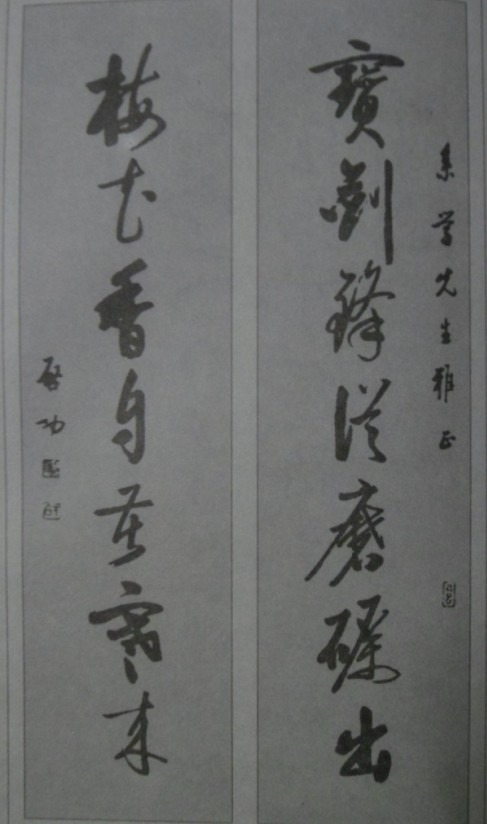 先生雅正
寶劍鋒從磨礪出
梅花香自苦寒來
啓功